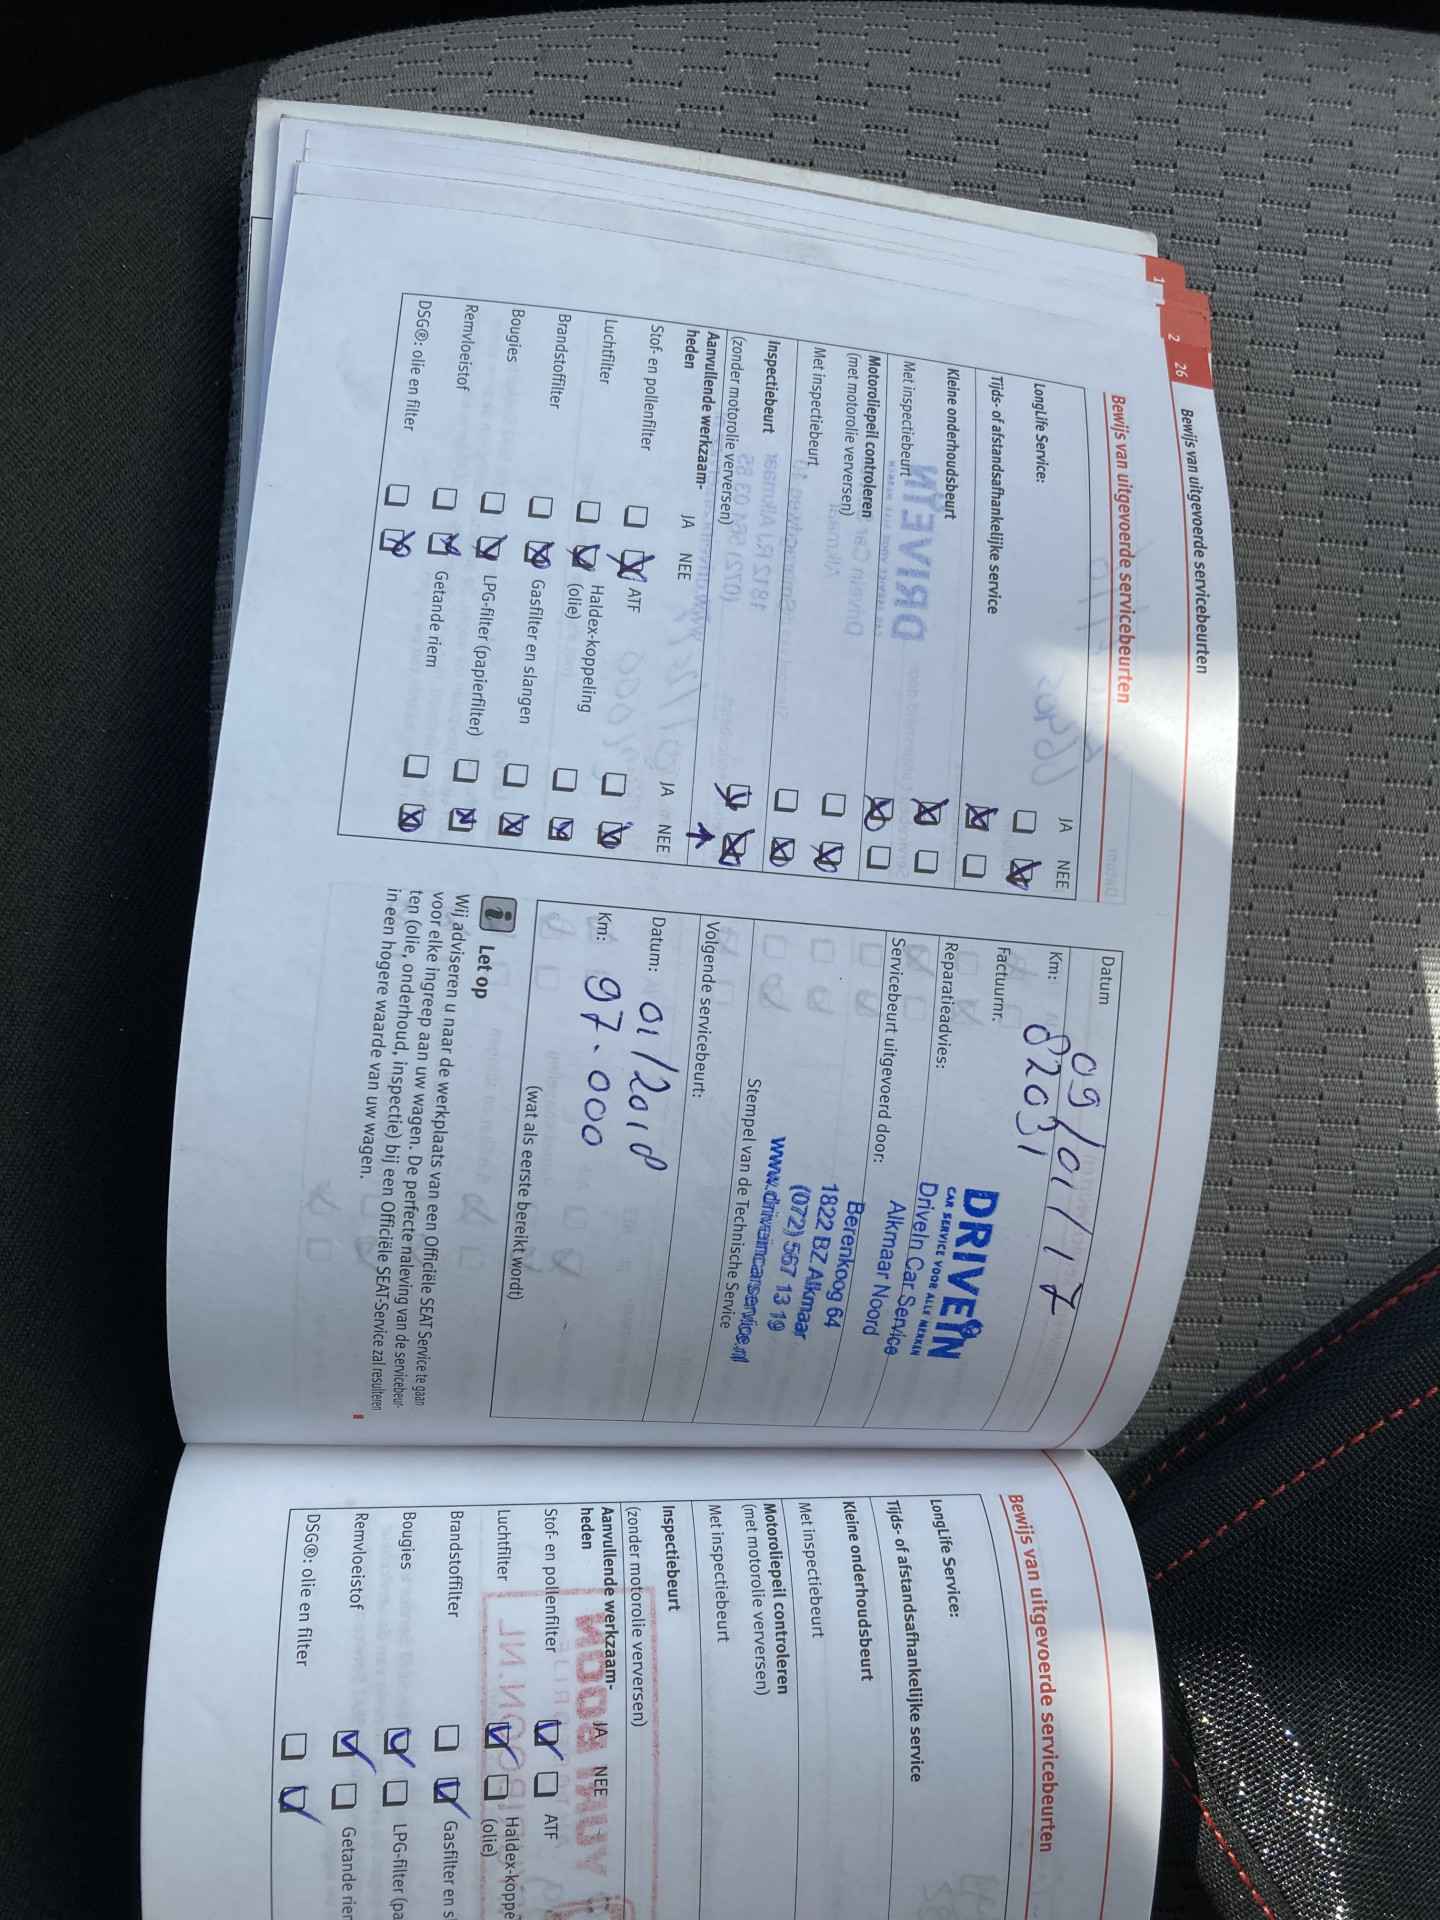 1
2
26
Bewijs van uitgevoerde servicebeurten
Bewijs van uitgevoerde servicebeurten
JA NEE
LongLife Service:
Tijds- of afstandsafhankelijke service
Kleine onderhoudsbeurt
Met inspectiebeurt
Motoroliepeil controleren
(met motorolie verversen)
Met inspectiebeurt
Inspectiebeurt
(zonder motorolie verversen)
Aanvullende werkzaam-
heden
JA NEE
JA NEE
Stof- en pollenfilter
ATF
Luchtfilter
Haldex-koppeling
(olie)
Brandstoffilter
Gasfilter en slangen
Bougies
LPG-filter (papierfilter)
Remvloeistof
Getande riem
DSG®: olie en filter
Datum 09/01/17
Km: 82031
Factuurnr.
Reparatieadvies:
Servicebeurt uitgevoerd door:
DRIVEIN
CAR SERVICE VOOR ALLE MERKEN
DriveIn Car Service
Alkmaar Noord
Berenkoog 64
1822 BZ Alkmaar
(072) 567 13 19
www.driveincarservice.nl
Stempel van de Technische Service
Volgende servicebeurt:
Datum: 01/2018
Km: 97.000
(wat als eerste bereikt wordt)
i Let op
Wij adviseren u naar de werkplaats van een Officiële SEAT Service te gaan
voor elke ingreep aan uw wagen. De perfecte naleving van de servicebeur-
ten (olie, onderhoud, inspectie) bij een Officiële SEAT-Service zal resulteren
in een hogere waarde van uw wagen.
Bewijs van uitgevoerde servicebeurten
LongLife Service:
Tijds- of afstandsafhankelijke service
Kleine onderhoudsbeurt
Met inspectiebeurt
Motoroliepeil controleren
(met motorolie verversen)
Met inspectiebeurt
Inspectiebeurt
(zonder motorolie verversen)
Aanvullende werkzaam-
heden
JA NEE
Stof- en pollenfilter
ATF
Luchtfilter
Haldex-koppe
(olie)
Brandstoffilter
Gasfilter en s
Bougies
LPG-filter (pa
Remvloeistof
Getande rien
DSG®: olie en filter